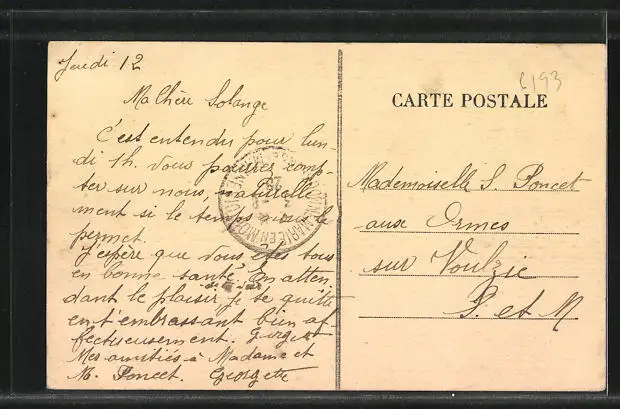 Jeudi 12
Ma Chère Solange
C'est entendu pour lun-
di 1h. Vous pourrez comp-
ter sur nous, naturelle
ment si le temps nous le
permet.
J'espère que vous êtes tous
en bonne santé. En atten
dant le plaisir je te quitte
en t'embrassant bien af-
fectueusement. Georgette
Mes amitiés à Madame et
M. Poncet. Georgette
6193
CARTE POSTALE
Mademoiselle S. Poncet
aux Ormes
sur Voulzie
S. et M